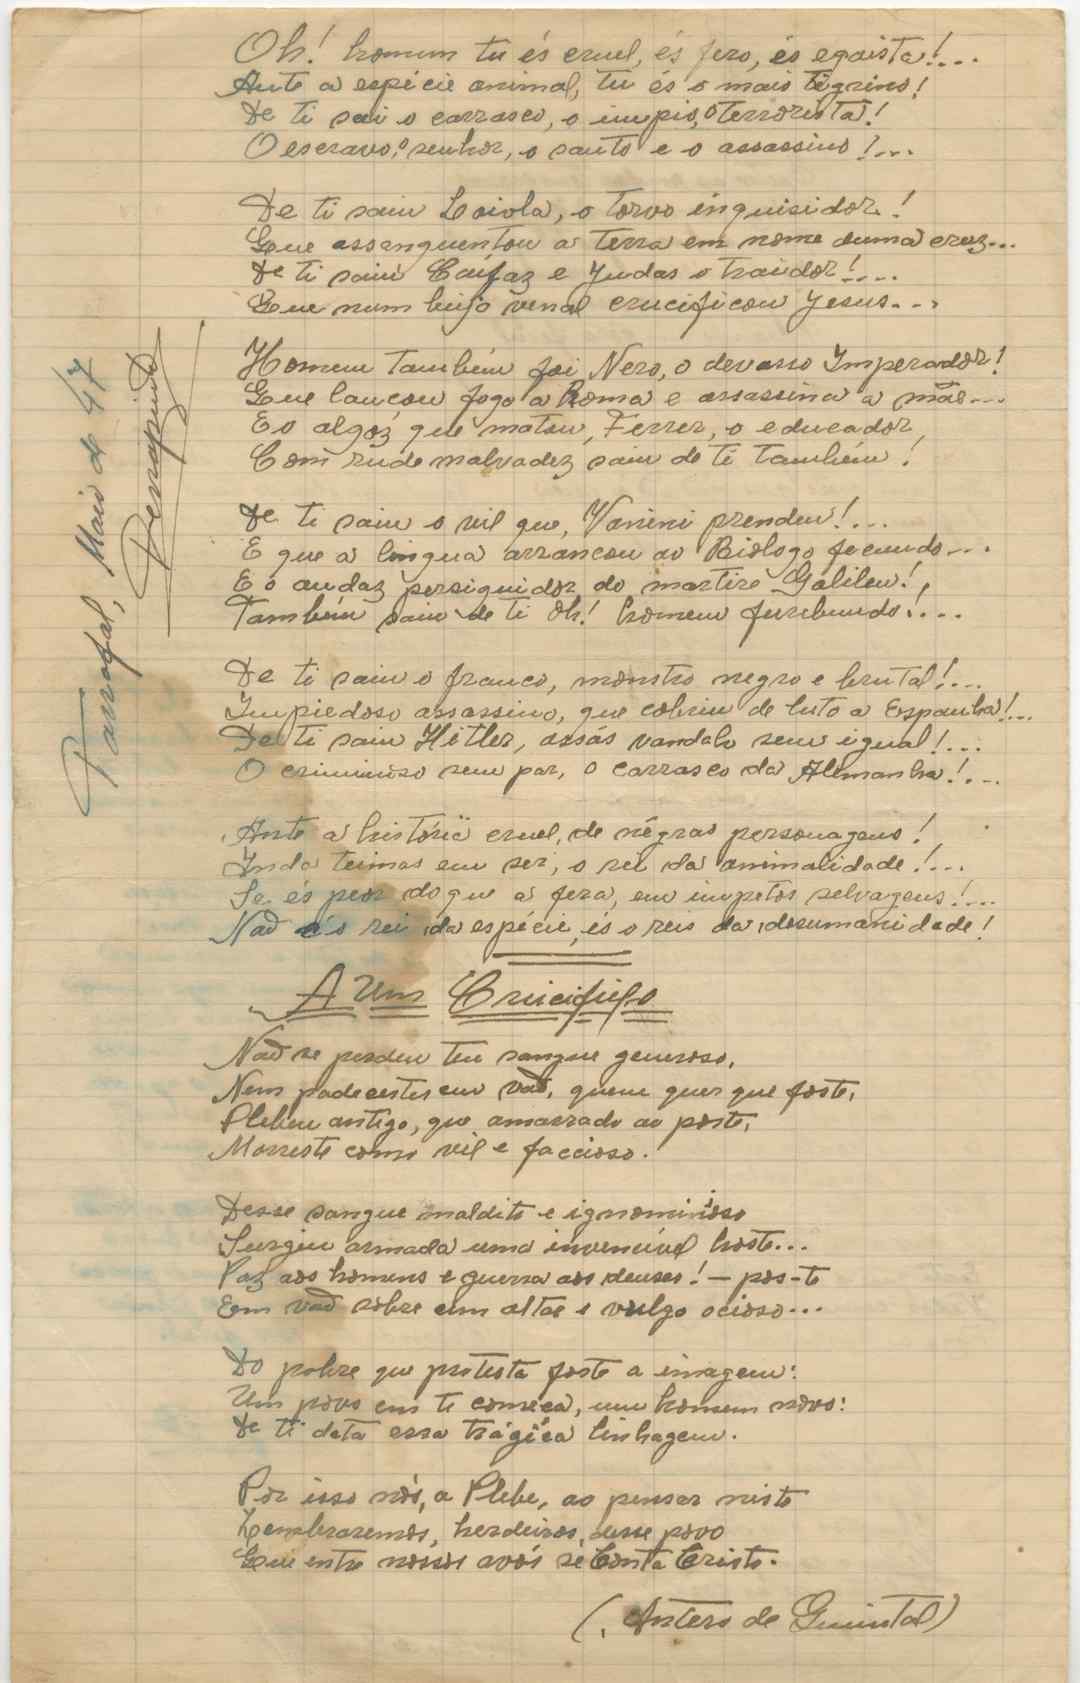 Oh! homem tu és cruel, és fero, és egoista!...
Ante a espécie animal, tu és o mais tigrino!
De ti sai o carrasco, o impio, o terrorista!
O escravo, o senhor, o santo e o assassino!...
De ti saiu Loiola, o torvo inquisidor!
Que assanguentou a terra em nome duma cruz...
De ti saiu Caifaz e Judas o traidor!...
Que num beijo venal crucificou Jesus...
Homem também foi Nero, o devasso Imperador!
Que lançou fogo a Roma e assassina a mãe...
E o algóz que matou, Ferrer, o educador,
Com rude malvadez saiu de ti também!
De ti saiu o vil que, Vanini prendeu!...
E que a lingua arrancou ao Biólogo fecundo...
E o audaz perseguidor do martire Galileu!,
Também saiu de ti oh! homem furibundo!...
De ti saiu o franco, monstro negro e brutal!...
Impiedoso assassino, que cobriu de luto a Espanha!...
De ti saiu Hitler, assás vandalo sem igual!...
O criminoso sem par, o carrasco da Alemanha!...
Ante a história cruel, de négras personagens!
Inda teimas em ser, o rei da animalidade!...
Se és peor do que a fera, em impetos selvagens!...
Não és o rei da espécie, és o reis da desumanidade!
Tarrafal, Maio de 47
A Um Crucifixo
Não se perdeu teu sangue generoso,
Nem padecestes em vão, quem quer que foste,
Plebeu antigo, que amarrado ao poste,
Morreste como vil e faccioso.
Desse sangue maldito e ignominioso
Surgiu armada uma invencível hoste...
Paz aos homens e guerra aos deuses! - pos-te
Em vão sobre um altar o vulgo ocioso...
Do pobre que protesta foste a imagem:
Um povo em ti começa, um homem novo:
De ti data essa trágica linhagem.
Por isso nós, a Plebe, ao pensar nisto
Lembraremos, herdeiros, desse povo
Que entre nossos avós se Conta Cristo.
(Antero de Quintal)